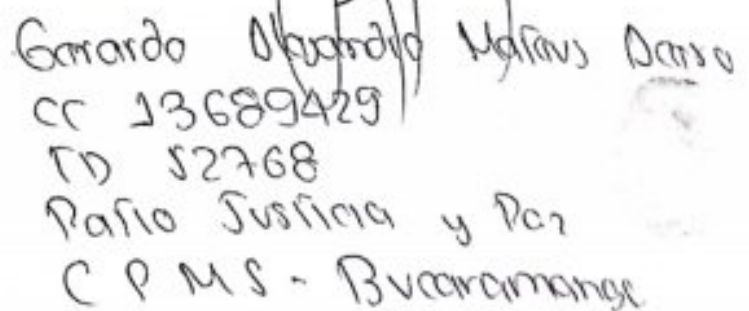 Gerardo Alejandro Mateus
CC 13689429
TD 52768
Patio Justicia y Paz
CPMS - Bucaramanga